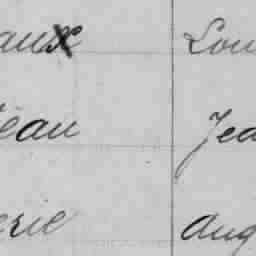 aux Lou
eau Jea
erie Aug